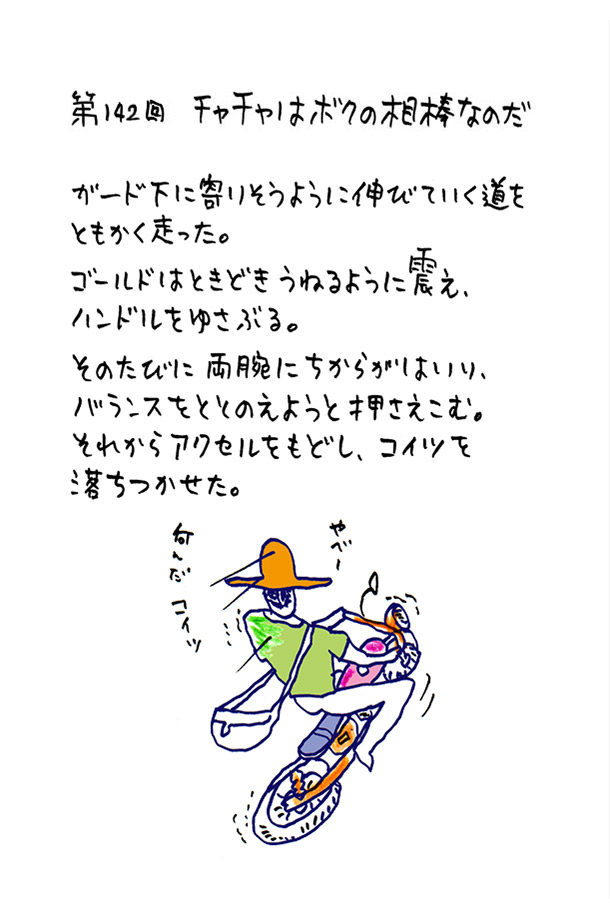 第142回 チャチャはボクの相棒なのだ
ガード下に寄りそうように伸びていく道を
ともかく走った。
ゴールドはときどきうねるように震え、
ハンドルをゆさぶる。
そのたびに両腕にちからがはいり、
バランスをととのえようと押さえこむ。
それからアクセルをもどし、コイツを
落ちつかせた。
やべー
何んだ コイツ